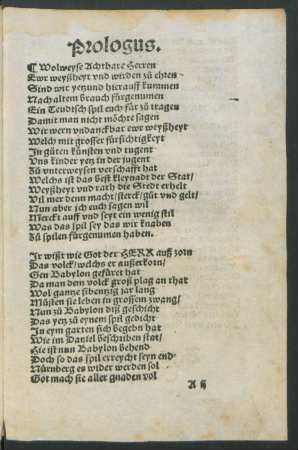 Prologus.
¶ Wolweyse Achtbare Herren
Ewr weyßheyt vnd wirden zů ehren
Sind wir yetzund hierauff kummen
Nach altem brauch fürgenumen
Ein Teudsch spil euch für zů tragen
Damit man nicht möcht sagen
Wir wern vndanckbar ewr weyßheyt
Welch mit grosser fürsichtigkeyt
In gůten künsten vnd tugent
Vns kinder yetz in der jugent
Zů vnterweysen verschafft hat
Welchs ist das best kleynadt der Stat/
Weyßheyt vnd rath die Stedt erhelt
Wil mer denn macht/sterck/gůt vnd gelt/
Nun aber ich euch sagen wil
Merckt auff vnd seyt ein wenig stil
Was das spil sey das wir knaben
Zů spilen fürgenumen haben.
Ir wißt wie Got der HERR auß zorn
Das volck/welchs er außerkorn/
Gen Babylon gefüret hat
Da man dem volck groß plag an that
Wol gantze sibentzig jar lang
Můsten sie leben in grossem zwang/
Nun zů Babylon diß geschicht
Das yetz zů eynem spil gedicht
In eym garten sich begebn hat
Wie im Daniel beschriben stat/
Hie ist nun Babylon behend
Doch so das spil erreycht seyn end
Nürnberg es wider werden sol
Got mach sie aller gnaden vol
A ij